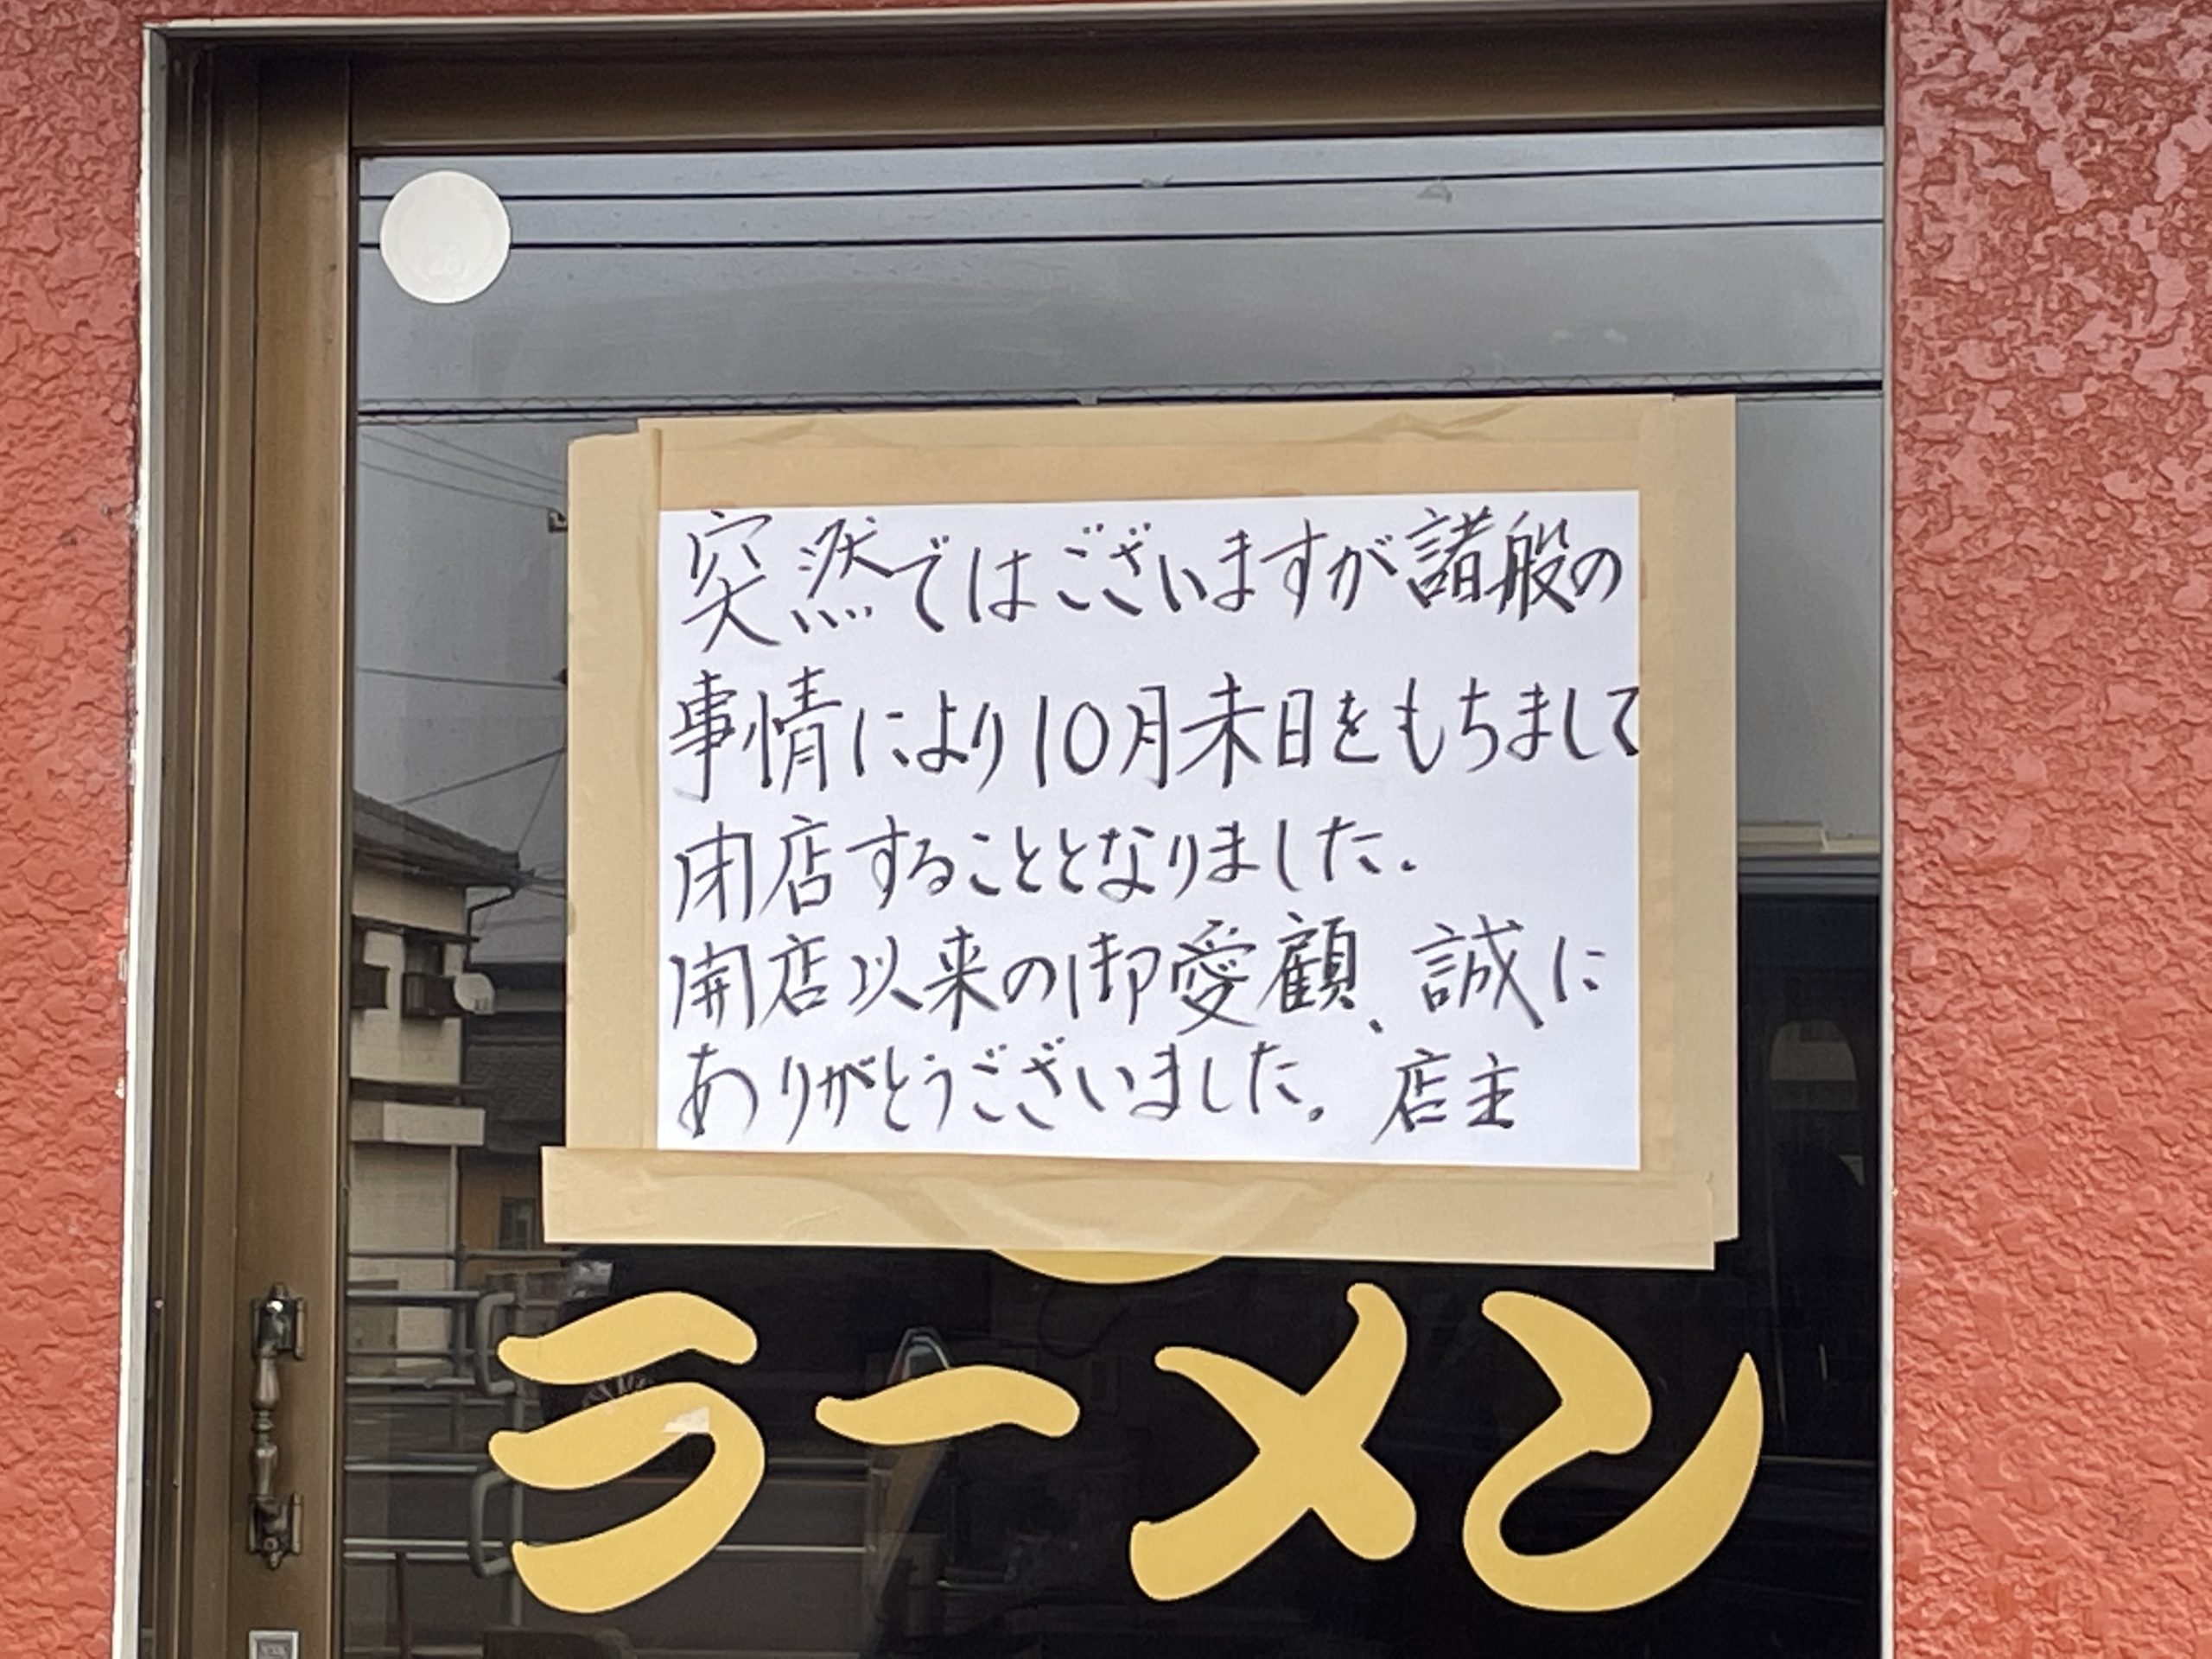 突然ではございますが諸般の
事情により10月末日をもちまして
閉店することとなりました。
開店以来の御愛顧、誠に
ありがとうございました。店主
ラーメン